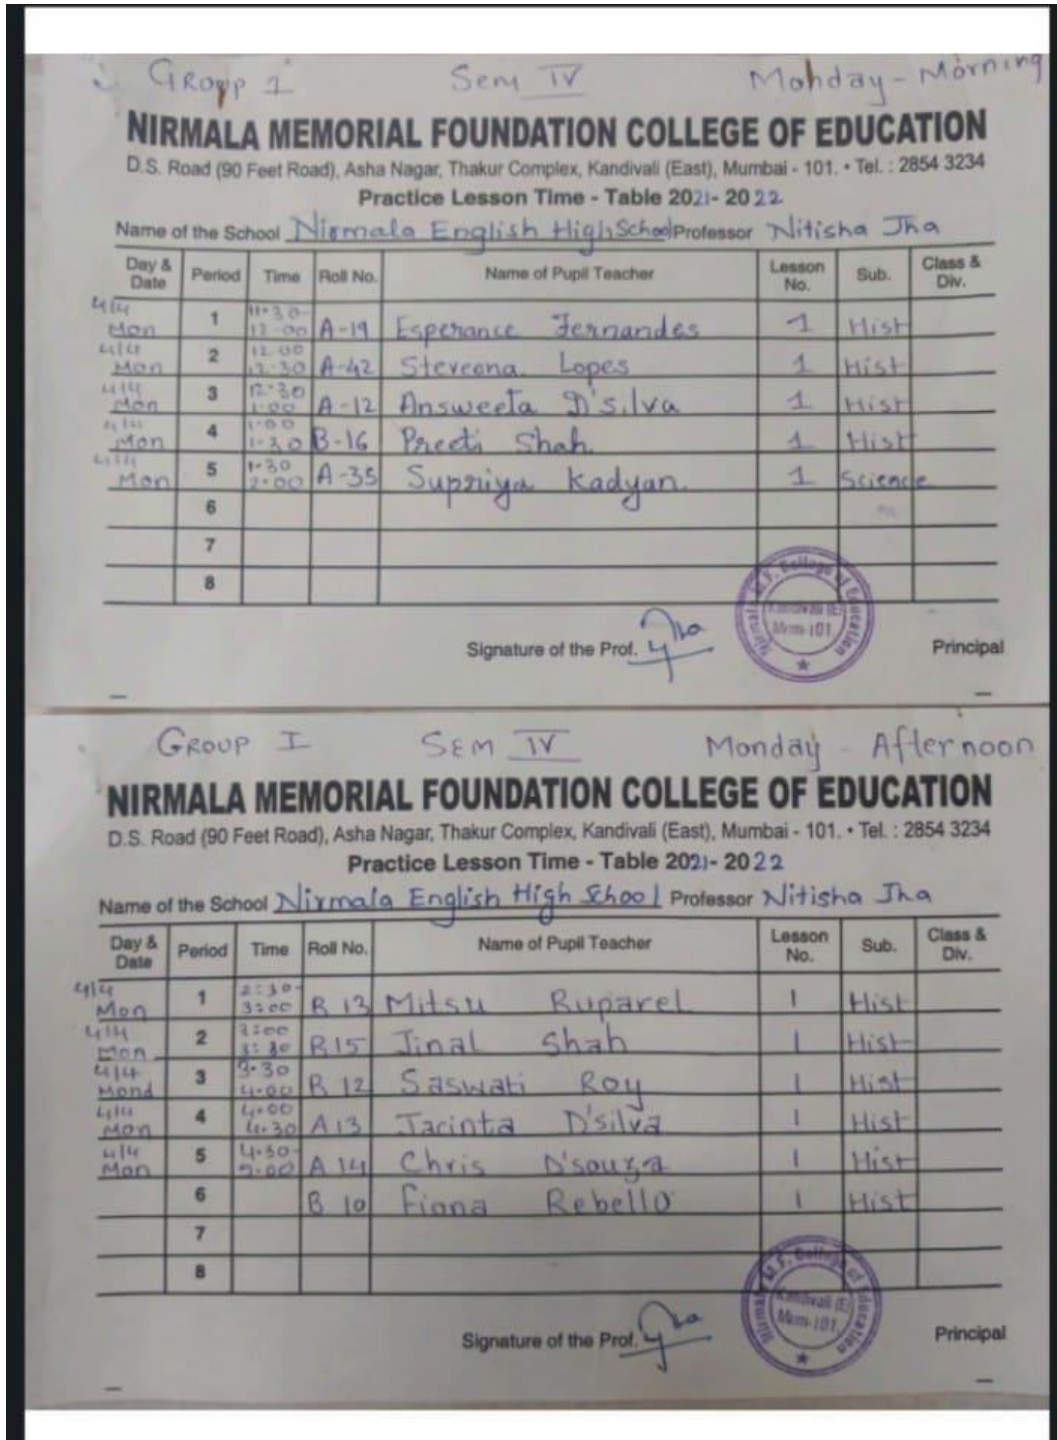 Group 1 Sem IV Monday - Morning
NIRMALA MEMORIAL FOUNDATION COLLEGE OF EDUCATION
D.S. Road (90 Feet Road), Asha Nagar, Thakur Complex, Kandivali (East), Mumbai - 101. • Tel. : 2854 3234
Practice Lesson Time - Table 2021- 2022
Name of the School Nirmala English High School Professor Nitisha Jha
Day & Date Period Time Roll No. Name of Pupil Teacher Lesson No. Sub. Class & Div.
4/4 Mon 1 11.30- 12.00 A-19 Esperance Fernandes 1 Hist
4/4 Mon 2 12.00 12.30 A-42 Steveena Lopes 1 Hist
4/4 Mon 3 12.30 1.00 A-12 Answeeta D'silva 1 Hist
4/4 Mon 4 1.00 1.30 B-16 Preeti Shah. 1 Hist
4/4 Mon 5 1.30 2.00 A-35 Supriya Kadyan. 1 Science
6
7
8
Nirmala M.F. College of Education
Kandivali (E)
Mum-101
Signature of the Prof. Principal
GROUP I SEM IV Monday - Afternoon
NIRMALA MEMORIAL FOUNDATION COLLEGE OF EDUCATION
D.S. Road (90 Feet Road), Asha Nagar, Thakur Complex, Kandivali (East), Mumbai - 101. • Tel. : 2854 3234
Practice Lesson Time - Table 2021- 2022
Name of the School Nirmala English High School Professor Nitisha Jha
Day & Date Period Time Roll No. Name of Pupil Teacher Lesson No. Sub. Class & Div.
4/4 Mon 1 2:30- 3:00 B 13 Mitsu Ruparel 1 Hist
4/4 Mon 2 3:00 3:30 B15 Jinal Shah 1 Hist
4/4 Mond 3 3.30 4.00 B 12 Saswati Roy 1 Hist
4/4 Mon 4 4.00 4.30 A13 Jacinta D'silva 1 Hist
4/4 Mon 5 4.30- 5.00 A 14 Chris D'souza 1 Hist
6 B 10 Fiona Rebello 1 Hist
7
8
Nirmala M.F. College of Education
Kandivali (E)
Mum-101
Signature of the Prof. Principal